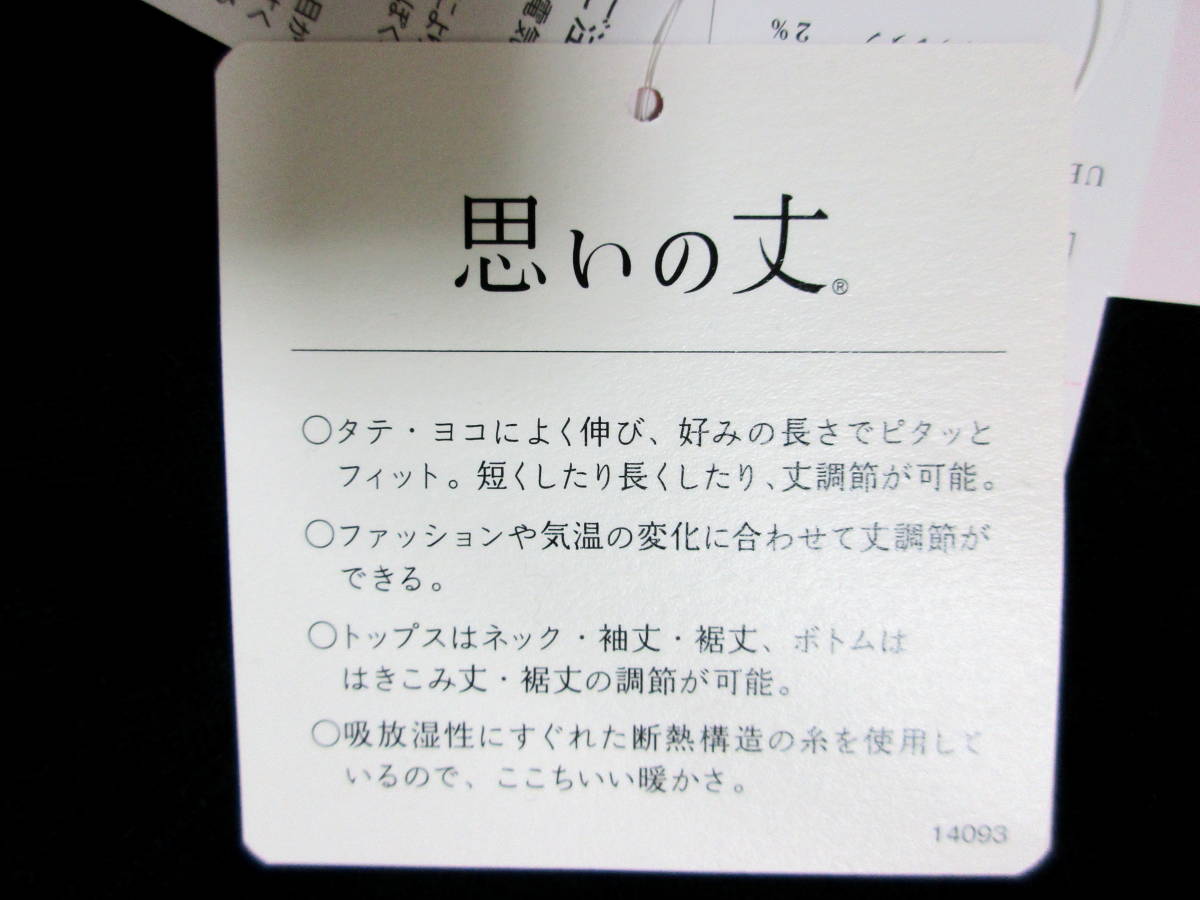 思いの丈®
○タテ・ヨコによく伸び、好みの長さでピタッと
フィット。短くしたり長くしたり、丈調節が可能。
○ファッションや気温の変化に合わせて丈調節が
できる。
○トップスはネック・袖丈・裾丈、ボトムは
はきこみ丈・裾丈の調節が可能。
○吸放湿性にすぐれた断熱構造の糸を使用して
いるので、ここちいい暖かさ。
14093
2%
電気
UE